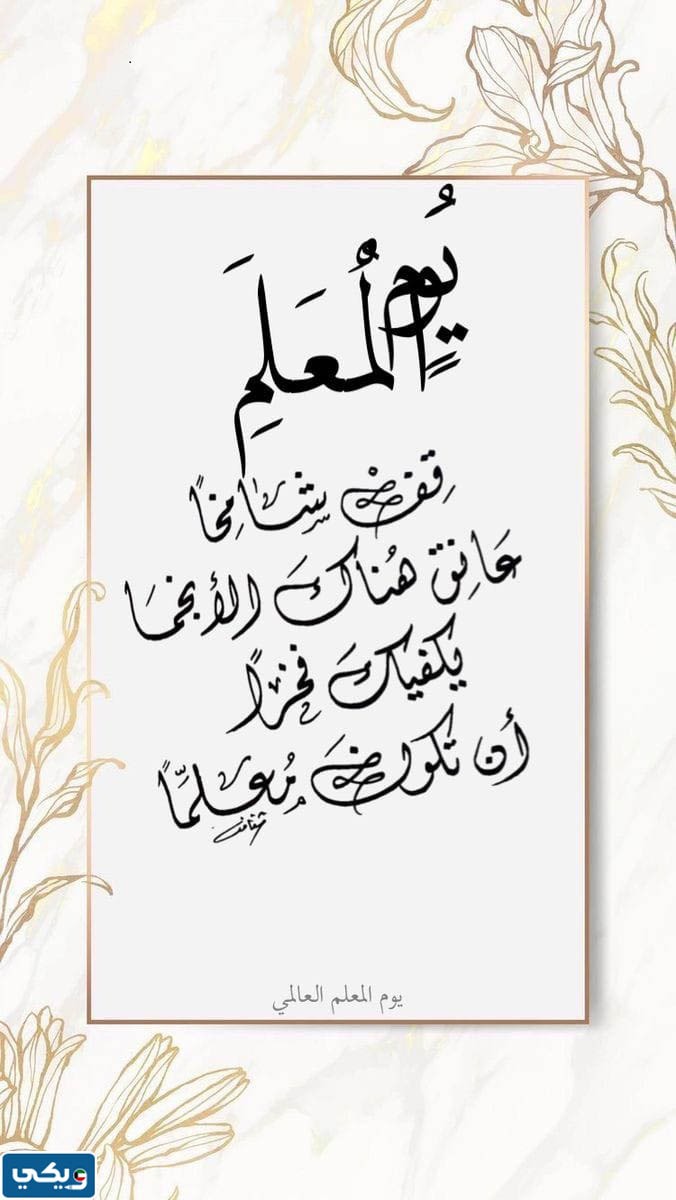 يُومٍ
المُعَلِمَ
قِف شامِخاً
عَانِق هُناكَ الأنجُمَا
يَكفيكَ فخراً
أن تكونَ مُعلِّمًا
يوم المعلم العالمي
ويكي